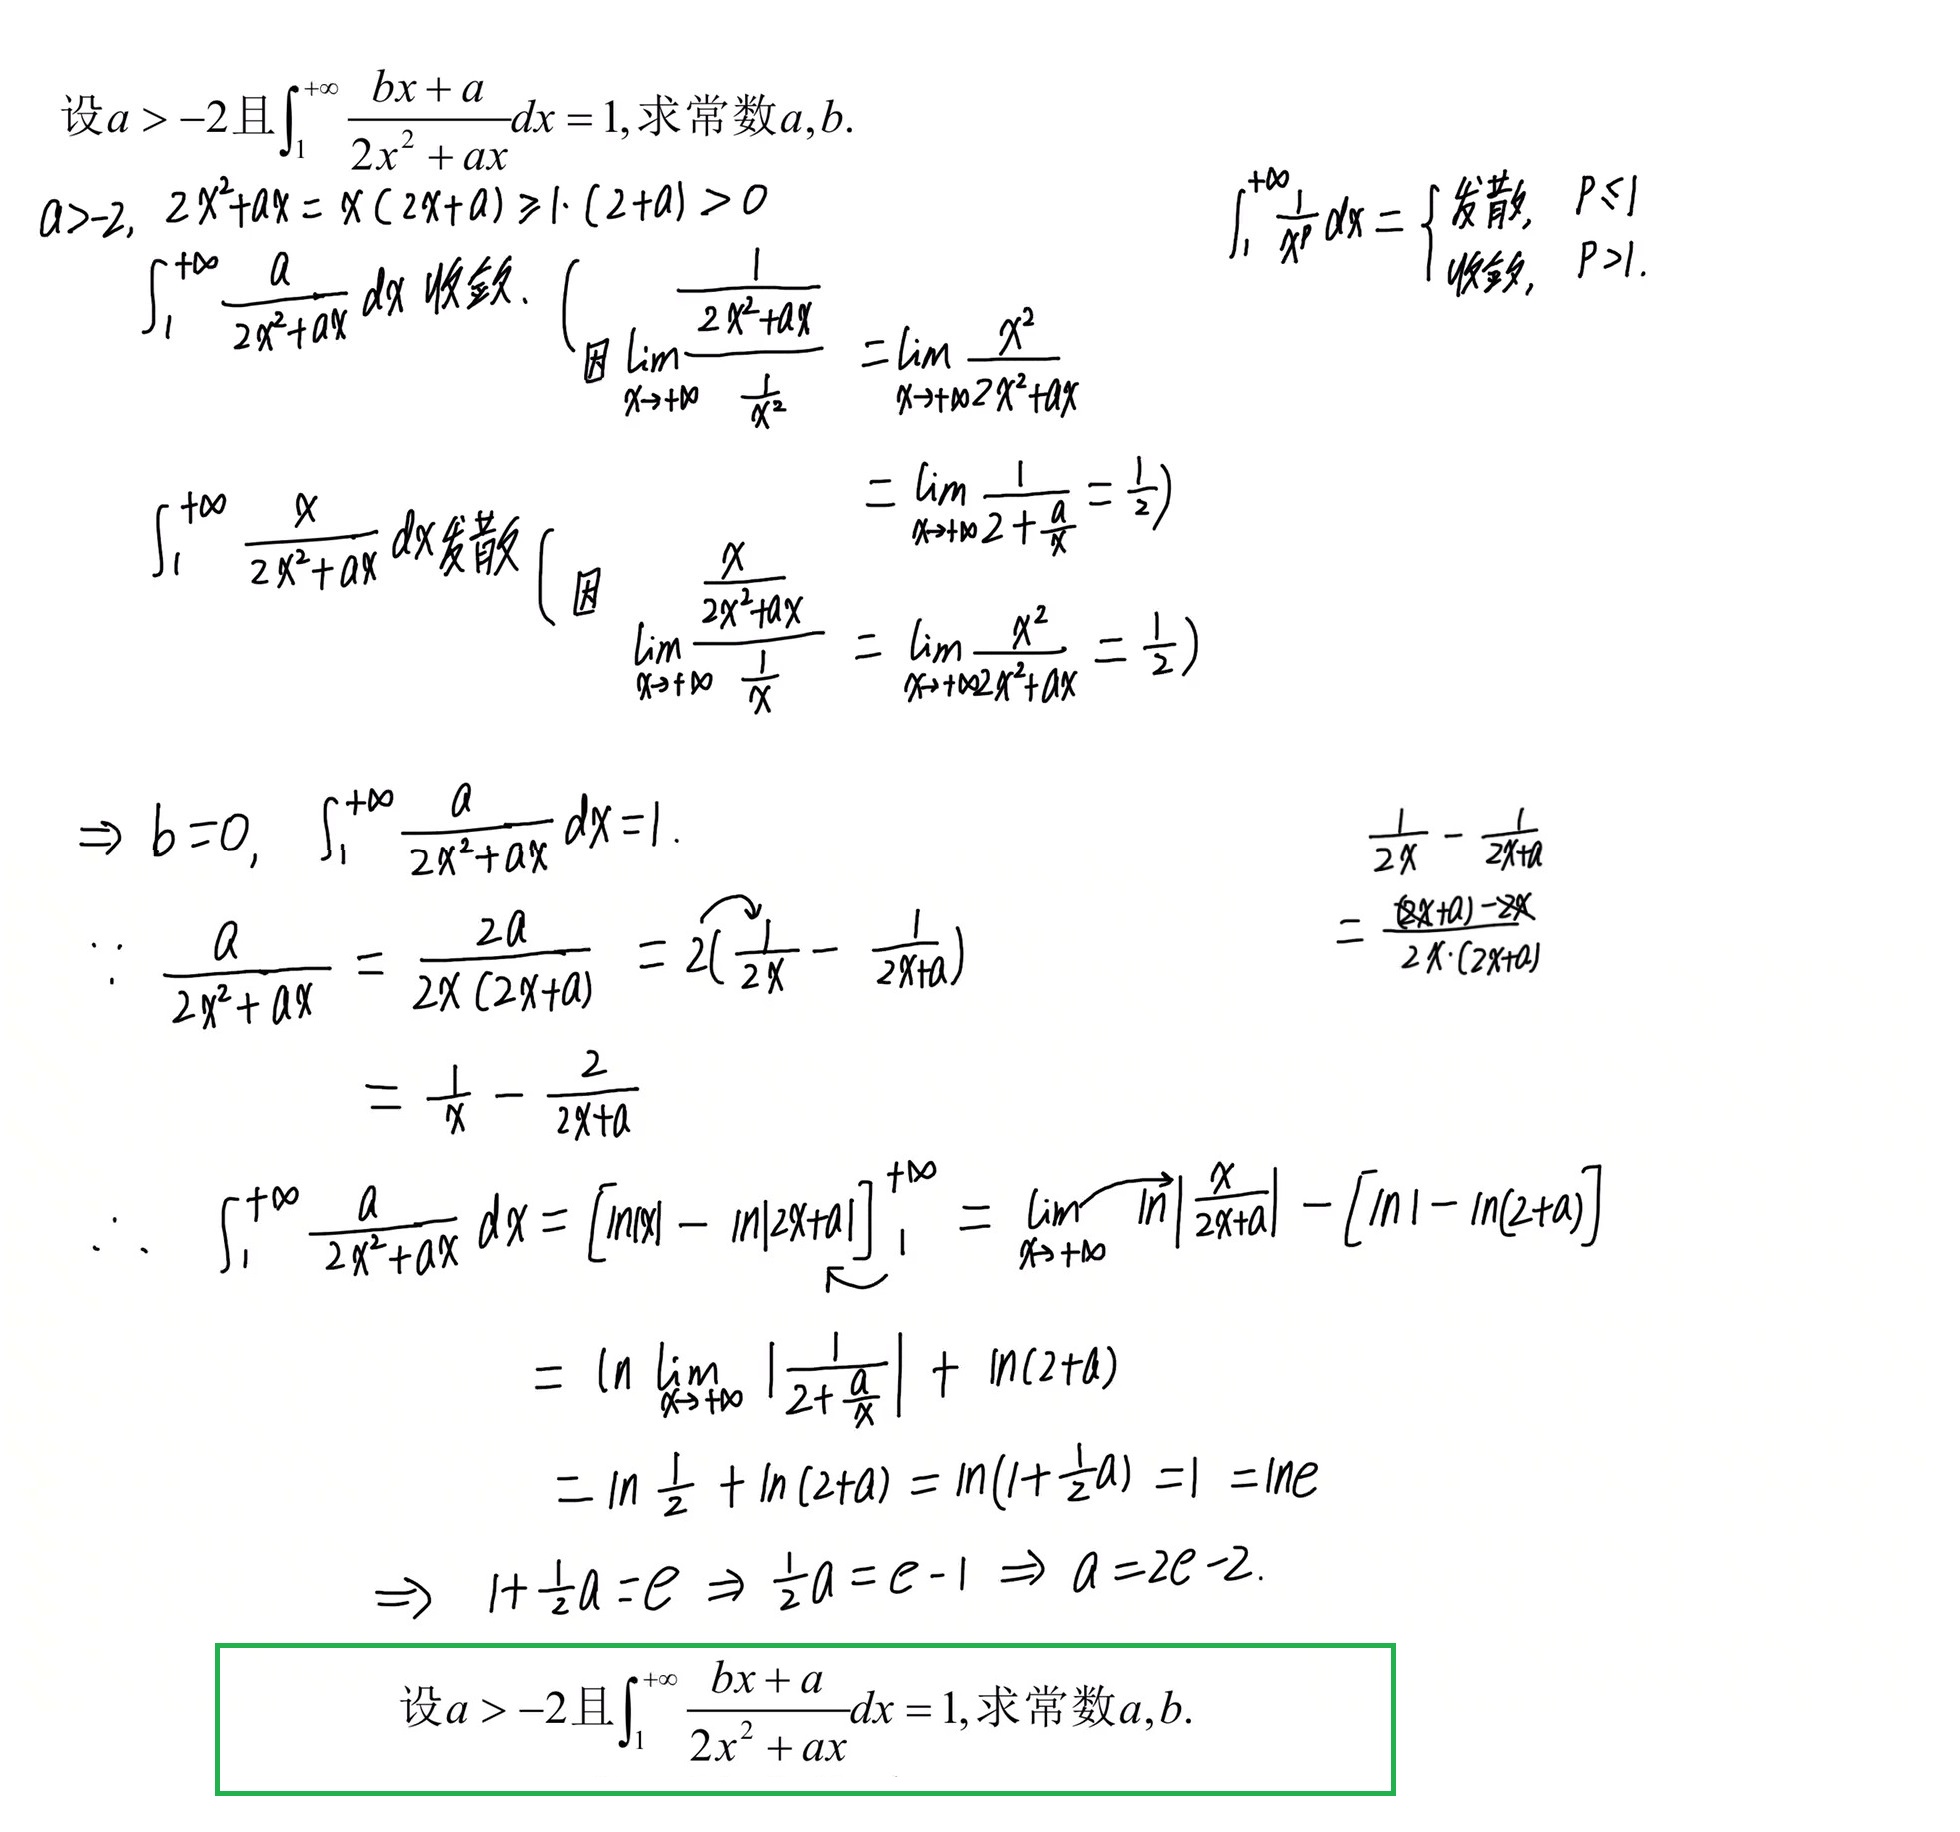 设a > −2且∫₁^{+∞} (bx + a)/(2x² + ax) dx = 1, 求常数a, b.
a>-2, 2x²+ax = x(2x+a) ≥ 1·(2+a) > 0
∫₁^{+∞} 1/x^p dx = { 发散, P≤1
收敛, P>1.
∫₁^{+∞} a/(2x²+ax) dx 收敛. (因 lim_{x→+∞} (1/(2x²+ax))/(1/x²) = lim_{x→+∞} x²/(2x²+ax)
= lim_{x→+∞} 1/(2+a/x) = 1/2)
∫₁^{+∞} x/(2x²+ax) dx 发散 (因 lim_{x→+∞} (x/(2x²+ax))/(1/x) = lim_{x→+∞} x²/(2x²+ax) = 1/2)
⇒ b=0, ∫₁^{+∞} a/(2x²+ax) dx = 1.
1/(2x) - 1/(2x+a)
= ((2x+a)-2x)/(2x·(2x+a))
∵ a/(2x²+ax) = 2a/(2x(2x+a)) = 2(1/(2x) - 1/(2x+a))
= 1/x - 2/(2x+a)
∴ ∫₁^{+∞} a/(2x²+ax) dx = [ln|x| - ln|2x+a|]₁^{+∞} = lim_{x→+∞} ln|x/(2x+a)| - [ln1 - ln(2+a)]
= ln lim_{x→+∞} |1/(2+a/x)| + ln(2+a)
= ln 1/2 + ln(2+a) = ln(1+1/2a) = 1 = lne
⇒ 1+1/2a = e ⇒ 1/2a = e-1 ⇒ a=2e-2.
设a > −2且∫₁^{+∞} (bx + a)/(2x² + ax) dx = 1, 求常数a, b.